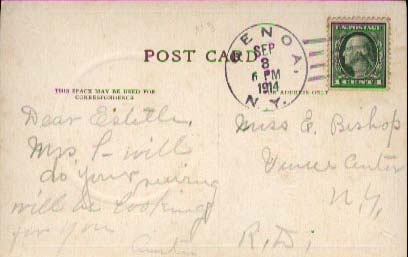 POST CARD
GENOA, N.Y.
SEP
3
6 PM
1914
U.S. POSTAGE
THIS SPACE MAY BE USED FOR
CORRESPONDENCE
ADDRESS ONLY
Dear Estella.
Mrs. P- will
do your sewing
will be looking
for you
Miss E. Bishop
Venice Center
N.Y.
R.D.